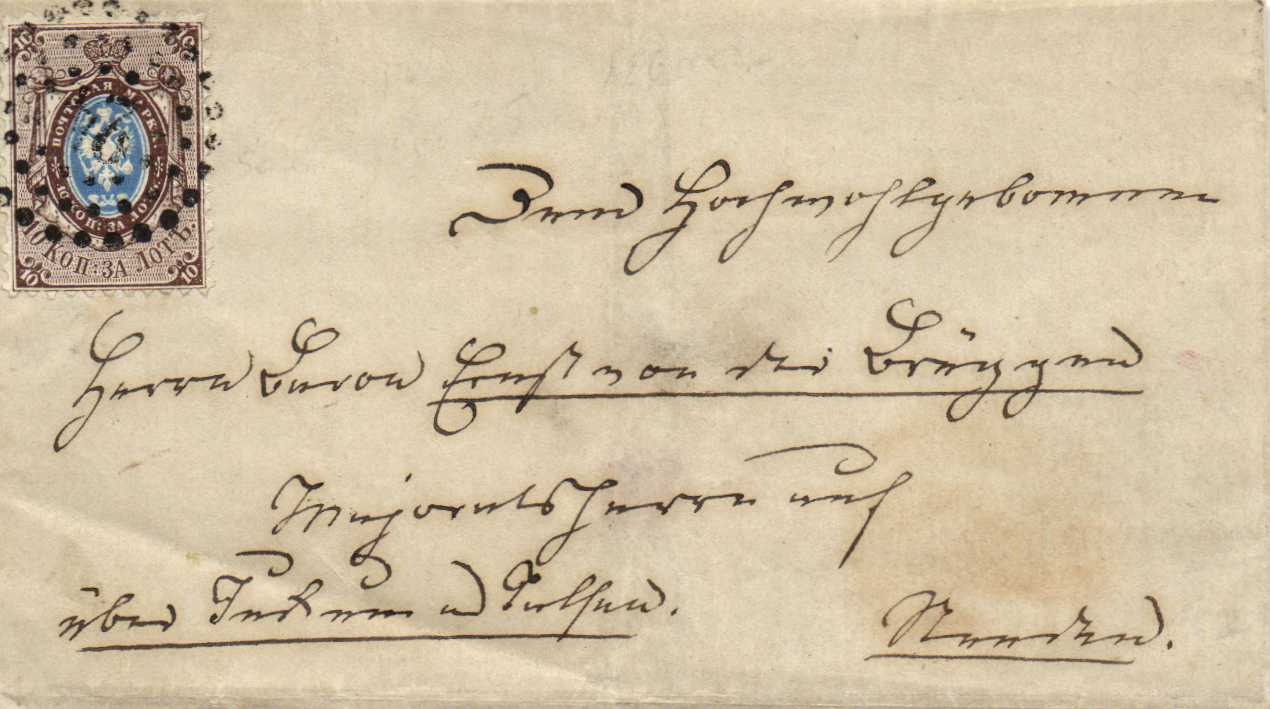 10 10
ПОЧТОВАЯ МАРКА
10 КОП: ЗА ЛОТЪ.
10 КОП: ЗА ЛОТЪ.
10 10
Dem Hochwohlgebornen
Herrn Baron Ernst von der Brüggen
Majoratsherrn auf
über Tuckum u Talsen.
Stenden.